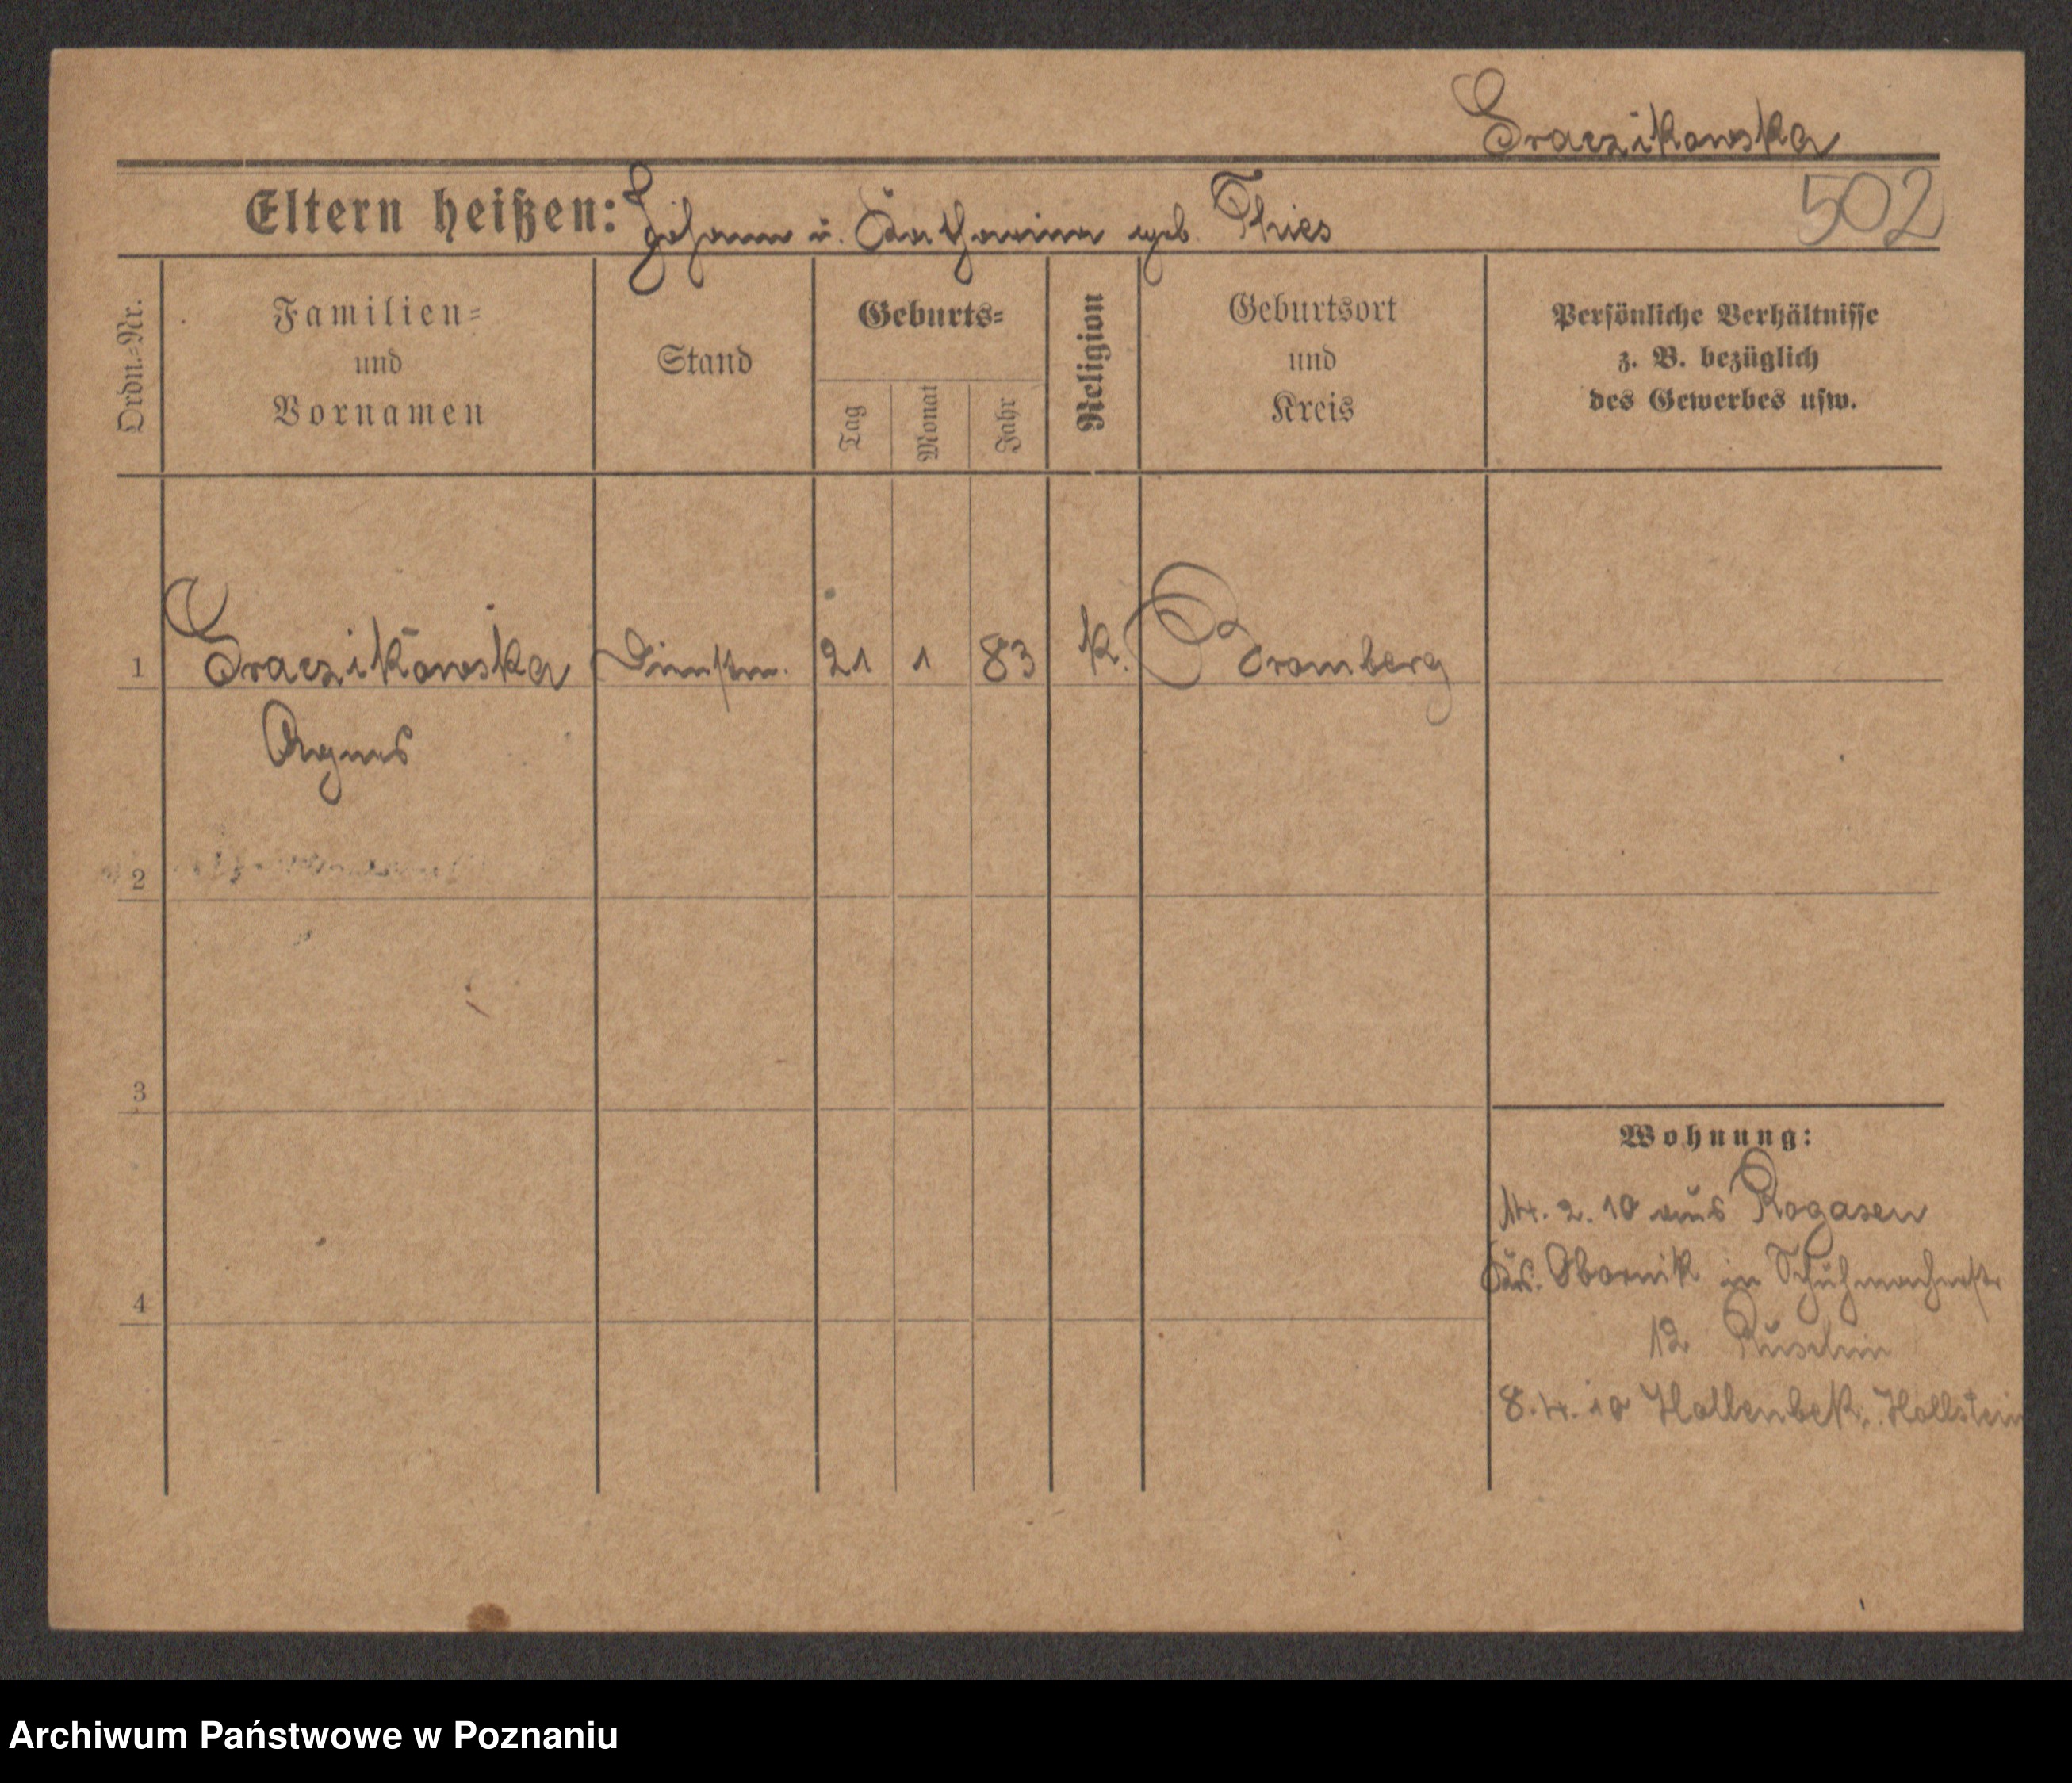 Graczikowska
Eltern heißen: Johann u. Katharina geb. Thies
502
Ordn.=Nr.
Familien=
und
Vornamen
Stand
Geburts=
Tag
Monat
Jahr
Religion
Geburtsort
und
Kreis
Persönliche Verhältnisse
z. B. bezüglich
des Gewerbes usw.
1 Graczikowska 21 1 83 k. Bromberg
Agnes
2
3
4
Wohnung:
14. 2. 10 aus Rogasen
Krs. Obornik in Schuhmacherstr
12
8. 4. 10 Hollenbek. Hollstein
Archiwum Państwowe w Poznaniu